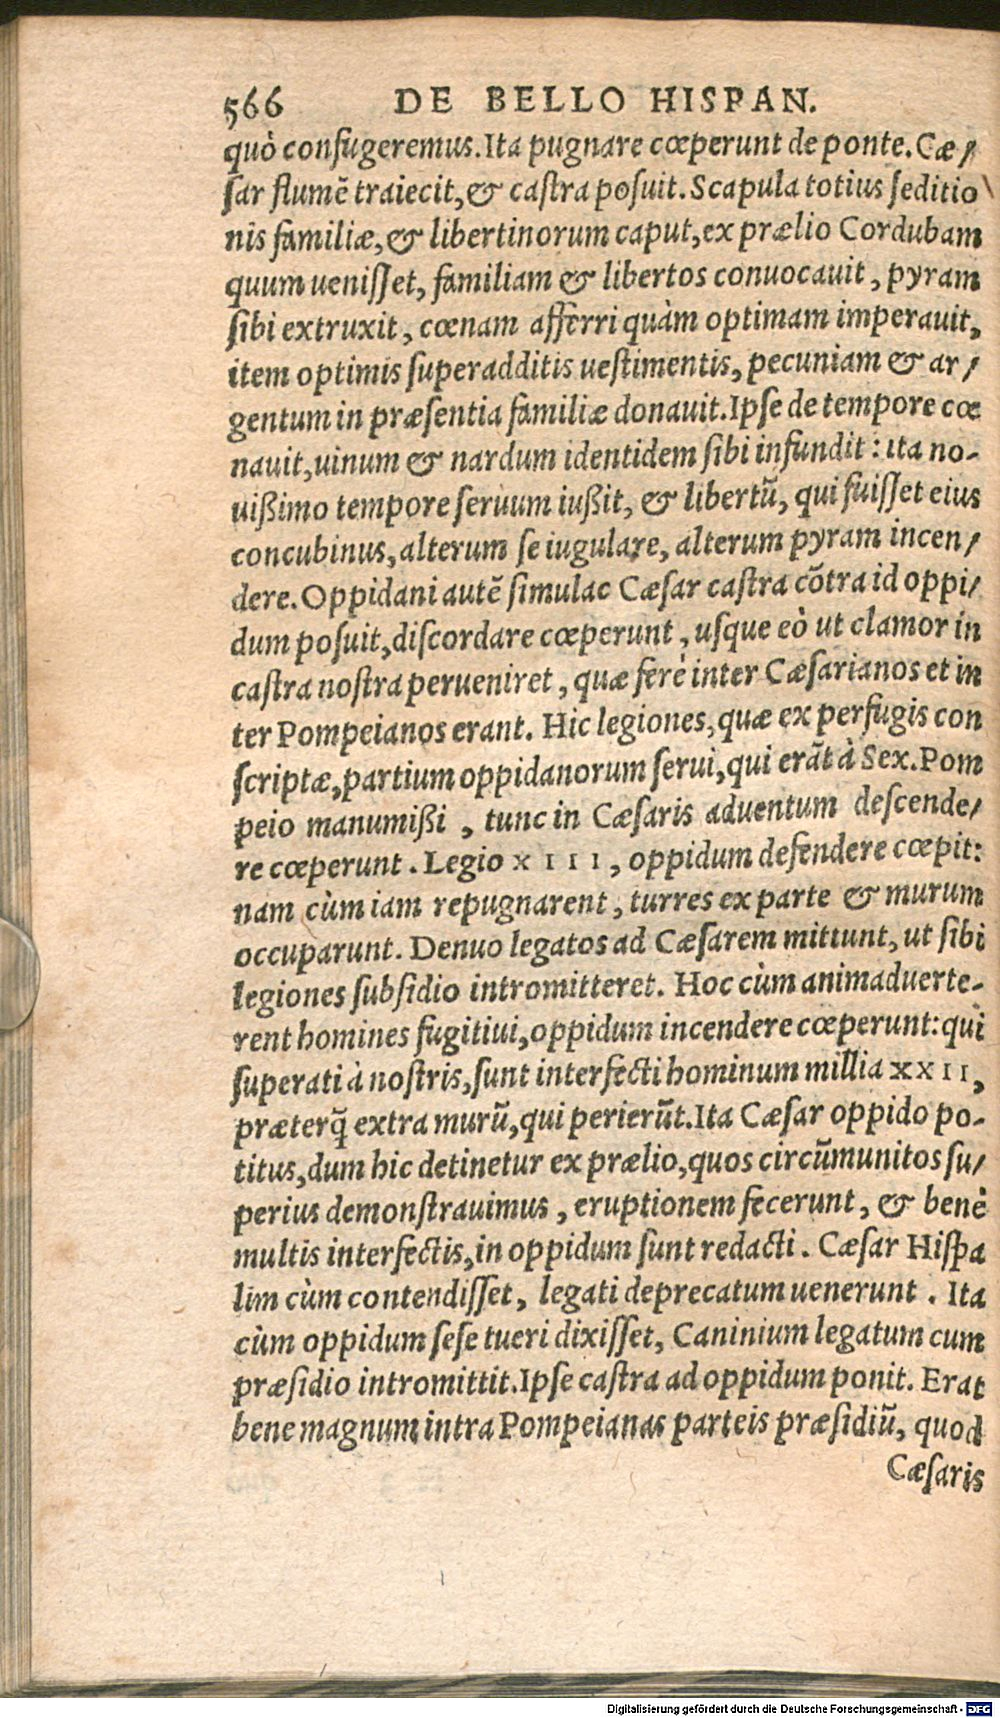 566 DE BELLO HISPAN.
quò confugeremus. Ita pugnare cœperunt de ponte. Cæ/
ſar flumẽ traiecit, & caſtra poſuit. Scapula totius ſeditio
nis familiæ, & libertinorum caput, ex prælio Cordubam
quum ueniſſet, familiam & libertos conuocauit, pyram
ſibi extruxit, cœnam afferri quàm optimam imperauit,
item optimis ſuperadditis ueſtimentis, pecuniam & ar/
gentum in præſentia familiæ donauit. Ipſe de tempore cœ
nauit, uinum & nardum identidem ſibi infundit: ita no-
uißimo tempore ſeruum iußit, & libertũ, qui fuiſſet eius
concubinus, alterum ſe iugulare, alterum pyram incen/
dere. Oppidani autẽ ſimulac Cæſar caſtra cõtra id oppi/
dum poſuit, diſcordare cœperunt, uſque eò ut clamor in
caſtra noſtra perueniret, quæ ferè inter Cæſarianos et in
ter Pompeianos erant. Hic legiones, quæ ex perfugis con
ſcriptæ, partium oppidanorum ſerui, qui erãt à Sex. Pom
peio manumißi, tunc in Cæſaris aduentum deſcende/
re cœperunt. Legio XIII, oppidum defendere cœpit:
nam cùm iam repugnarent, turres ex parte & murum
occuparunt. Denuo legatos ad Cæſarem mittunt, ut ſibi
legiones ſubſidio intromitteret. Hoc cùm animaduerte-
rent homines fugitiui, oppidum incendere cœperunt: qui
ſuperati à noſtris, ſunt interfecti hominum millia XXII,
præterq̃ extra murũ, qui perierũt. Ita Cæſar oppido po-
titus, dum hic detinetur ex prælio, quos circũmunitos ſu/
perius demonſtrauimus, eruptionem fecerunt, & benè
multis interfectis, in oppidum ſunt redacti. Cæſar Hiſpa
lim cùm contendiſſet, legati deprecatum uenerunt. Ita
cùm oppidum ſeſe tueri dixiſſet, Caninium legatum cum
præſidio intromittit. Ipſe caſtra ad oppidum ponit. Erat
bene magnum intra Pompeianas parteis præſidiũ, quod
Cæſaris
Digitalisierung gefördert durch die Deutsche Forschungsgemeinschaft - DFG